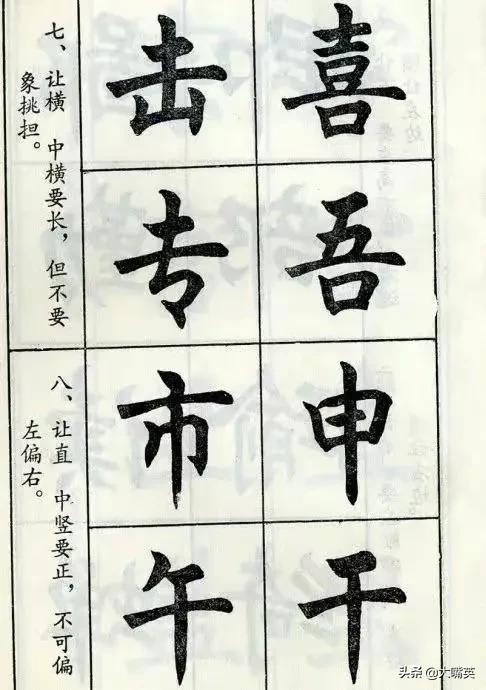 七、让横 中横要长，但不要
象挑担。
喜 击
吾 专
八、让直 中竖要正，不可偏
左偏右。
申 市
干 午
头条 @大嘴英